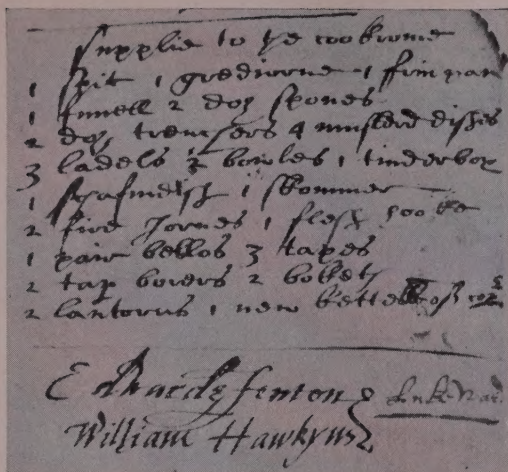 Supplie to the cookrome
1 spit 1 gredirone 1 friinpan
1 funell 2 doz spones
2 doz trenchers 4 musterd dishes
3 ladels 2 bowles 1 tinderbox
1 1 skommer
2 fire Jornes 1 flesh hooke
1 pair bellos 3 tapes
2 tap borers 2
2 lantorns 1 new kettell
Edwarde fenton
William Hawkyns